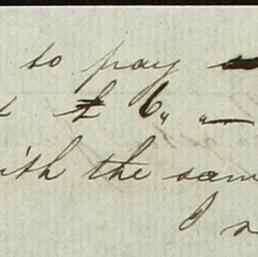 to pay
£ 6,, ,,—
ith the sam